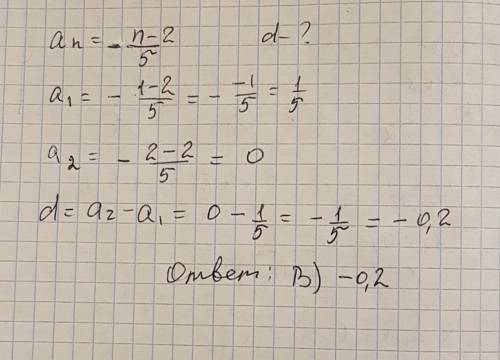 aₙ = - (n-2)/5    d - ?
a₁ = - (1-2)/5 = - (-1)/5 = 1/5
a₂ = - (2-2)/5 = 0
d = a₂ - a₁ = 0 - 1/5 = - 1/5 = - 0,2
Ответ: В) -0,2